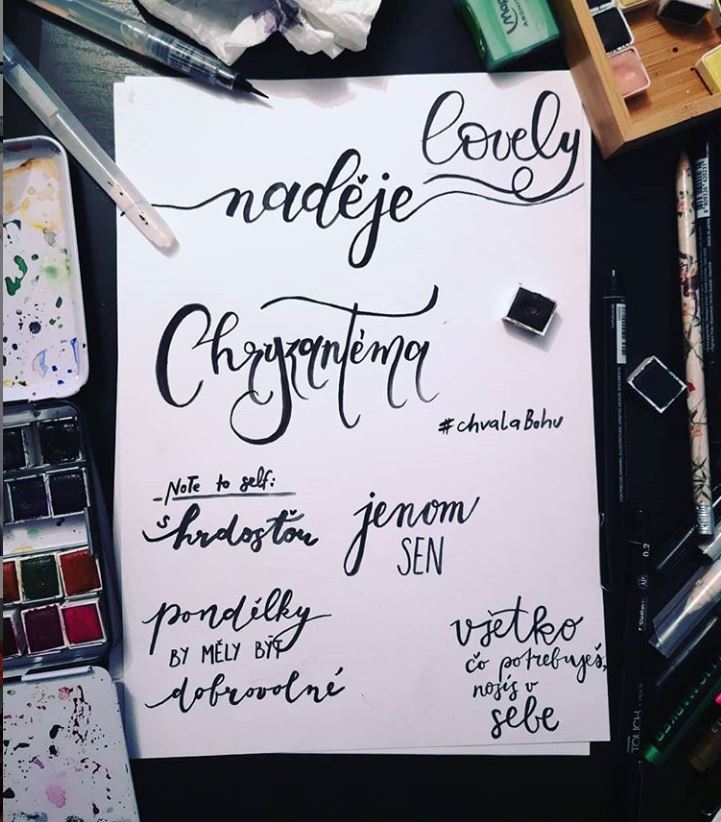 lovely
naděje
Chryzantéma
#chvalaBohu
Note to self:
s hrdosťou
jenom
SEN
pondělky
BY MĚLY BÝT
dobrovolné
všetko
čo potrebuješ,
nosíš v
sebe